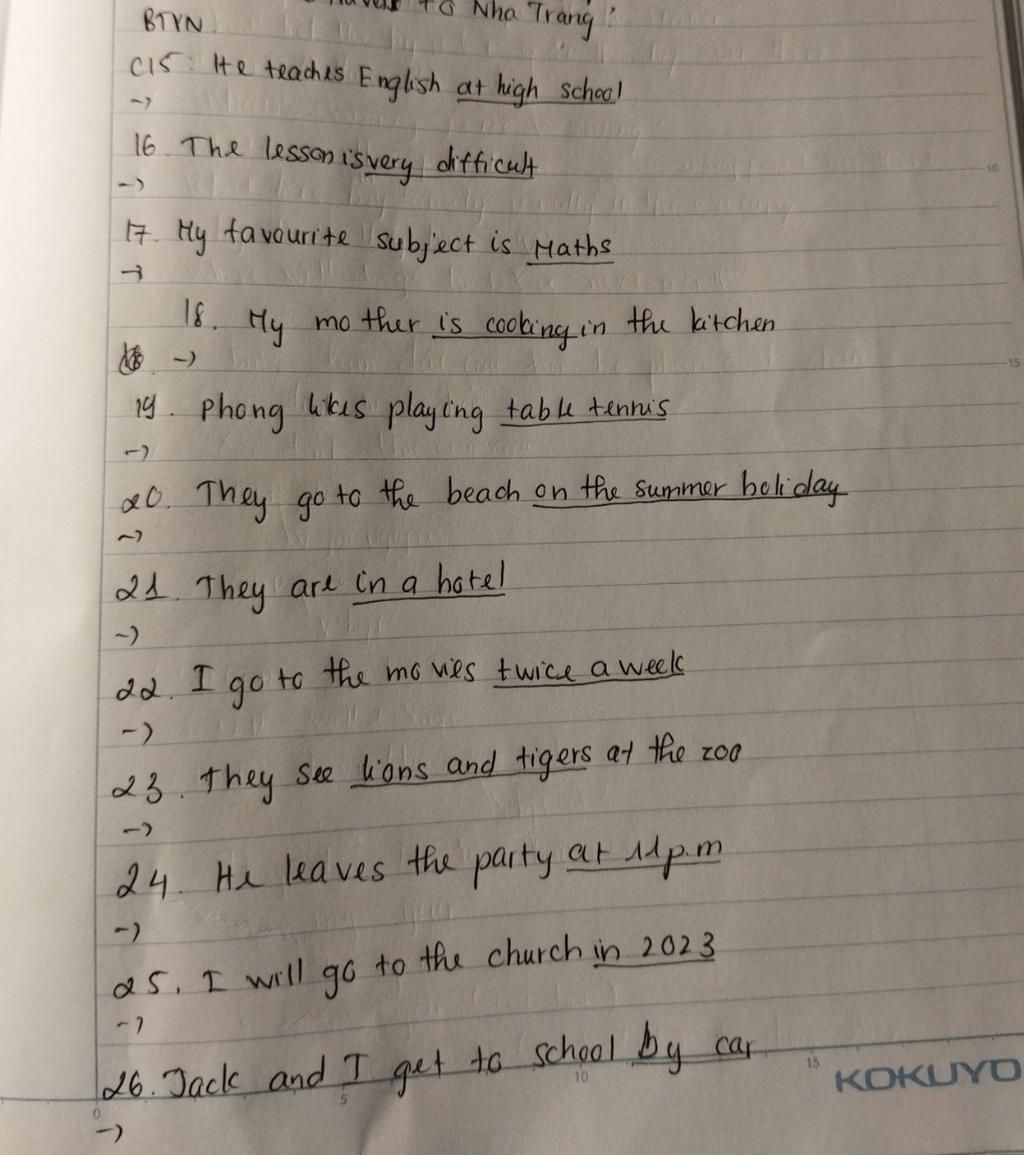 to Nha Trang?
BTVN.
C15: He teaches English at high school
->
16. The lesson is very difficult
->
17. My favourite subject is Maths
->
18. My mother is cooking in the kitchen
->
19. Phong likes playing table tennis
->
20. They go to the beach on the summer holiday
->
21. They are in a hotel
->
22. I go to the movies twice a week
->
23. They see lions and tigers at the zoo
->
24. He leaves the party at 11p.m
->
25. I will go to the church in 2023
->
26. Jack and I get to school by car
->
0 5 10 15 KOKUYO
10
15